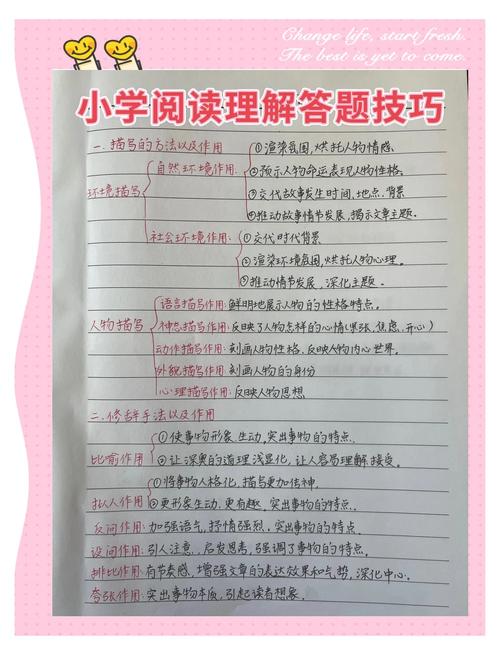 Change life, start fresh.
The best is yet to come.
小学阅读理解答题技巧
一.描写的方法以及作用
环境描写
自然环境作用
①渲染氛围,烘托人物情感
②预示人物命运表现人物性格.
③交代故事发生时间,地点,背景
④推动故事情节发展,揭示文章主题.
社会环境作用:
①交代时代背景
②渲染环境氛围,烘托人物心理.
③推动情节发展,深化主题.
人物描写
语言描写作用:鲜明地展示人物的性格特点.
神态描写作用:反映了人物怎样的心情(紧张,焦虑,开心)
动作描写作用:刻画人物性格,反映人物内心世界.
外貌描写作用:刻画人物的身份
心理描写作用:反映人物思想
二.修辞手法以及作用
比喻作用
①使事物形象生动,突出事物的特点.
②让深奥的道理浅显化,让人容易理解接受.
拟人作用
①将事物人格化,描写更加传神.
②更形象生动,更有趣,突出事物的特点.
反问作用:加强语气,抒情强烈,突出事物的特点
设问作用:引人注意,启发思考,强调了事物的特点.
排比作用:有节奏感,增强文章的表达效果和气势,深化中心.
夸张作用:突出事物本质,引起读者想象.